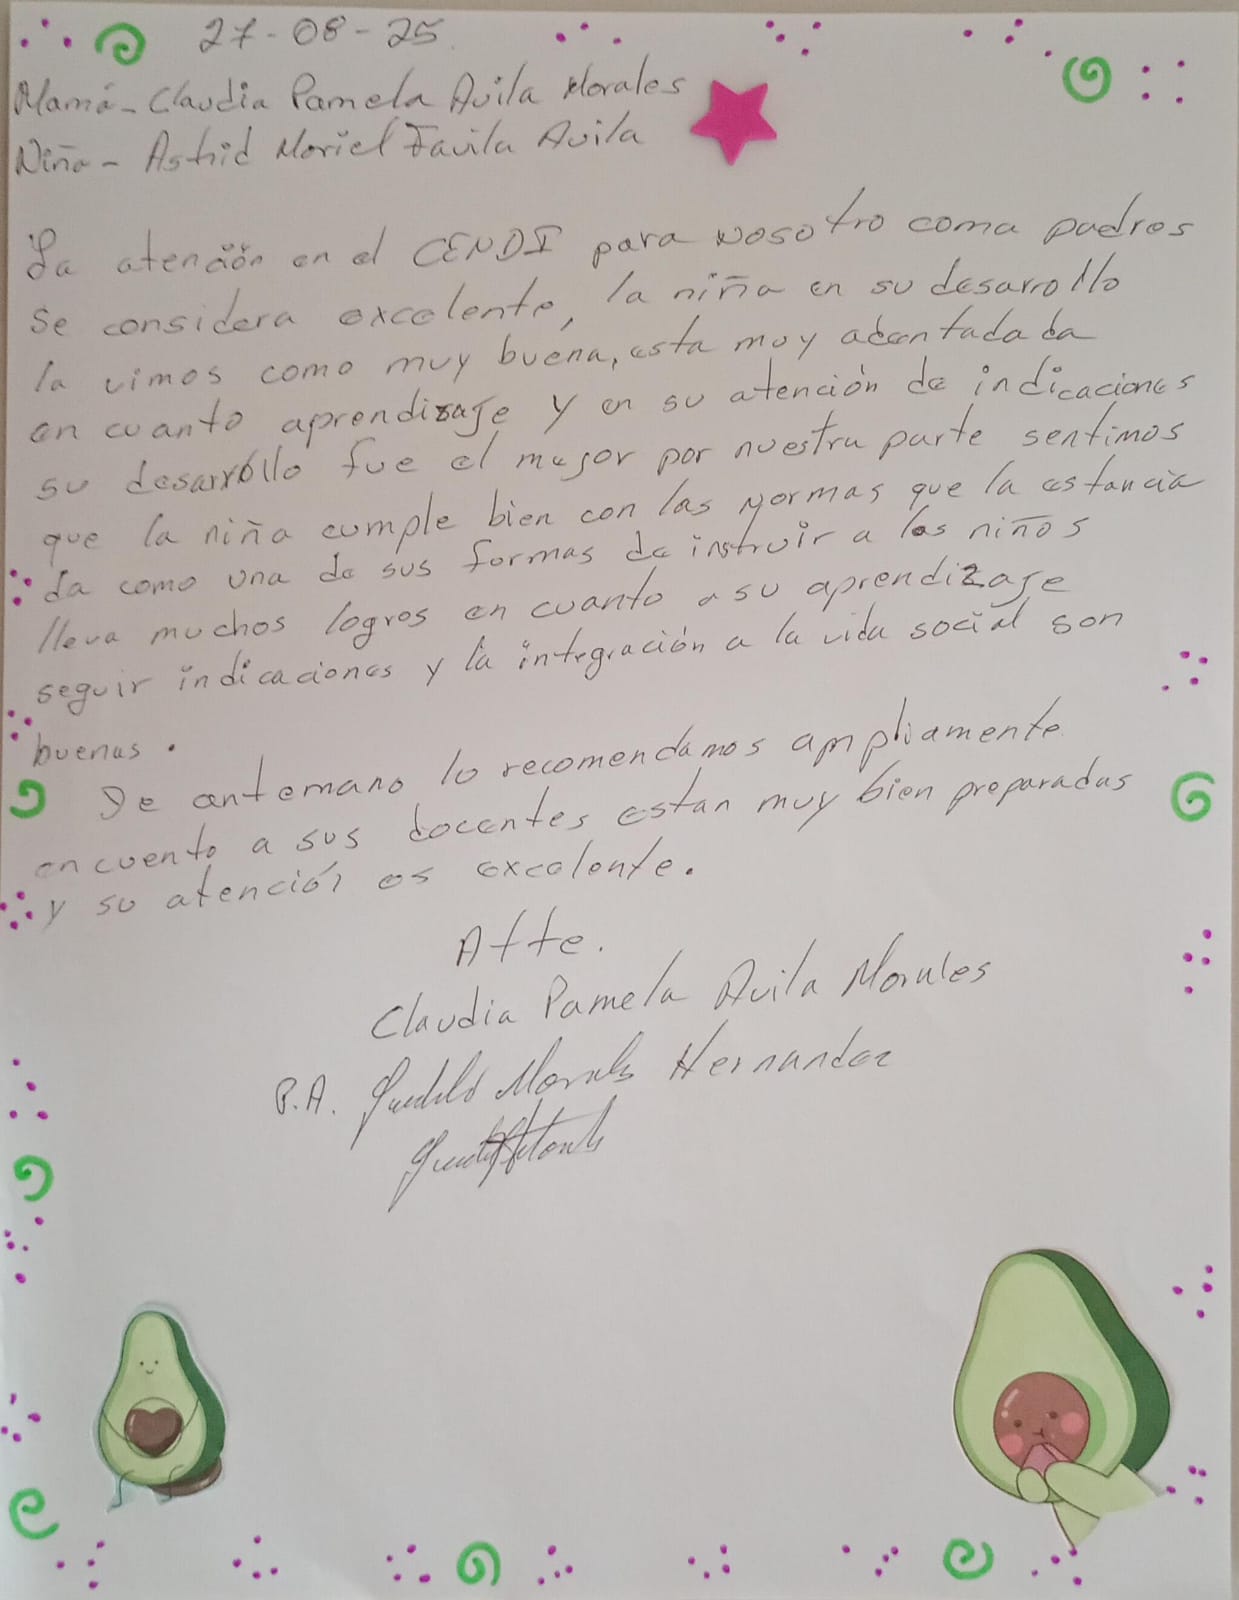 27-08-25
Mamá-Claudia Pamela Avila Morales
Niña- Astrid Moriel Favila Avila
La atención en el CENDI para nosotro coma padres
se considera excelente, la niña en su desarrollo
la vimos como muy buena, esta muy adentada da
en cuanto aprendizaje y en su atención de indicaciones
su desarrollo fue el mejor por nuestra parte sentimos
que la niña cumple bien con las normas que la estancia
da como una de sus formas de instruir a los niños
lleva muchos logros en cuanto a su aprendizaje
seguir indicaciones y la integración a la vida social son
buenas.
De antemano lo recomendamos ampliamente
encuento a sus docentes estan muy bien preparadas
y su atención es excelente.
Atte.
Claudia Pamela Avila Morales
P.A. Morales Hernandez